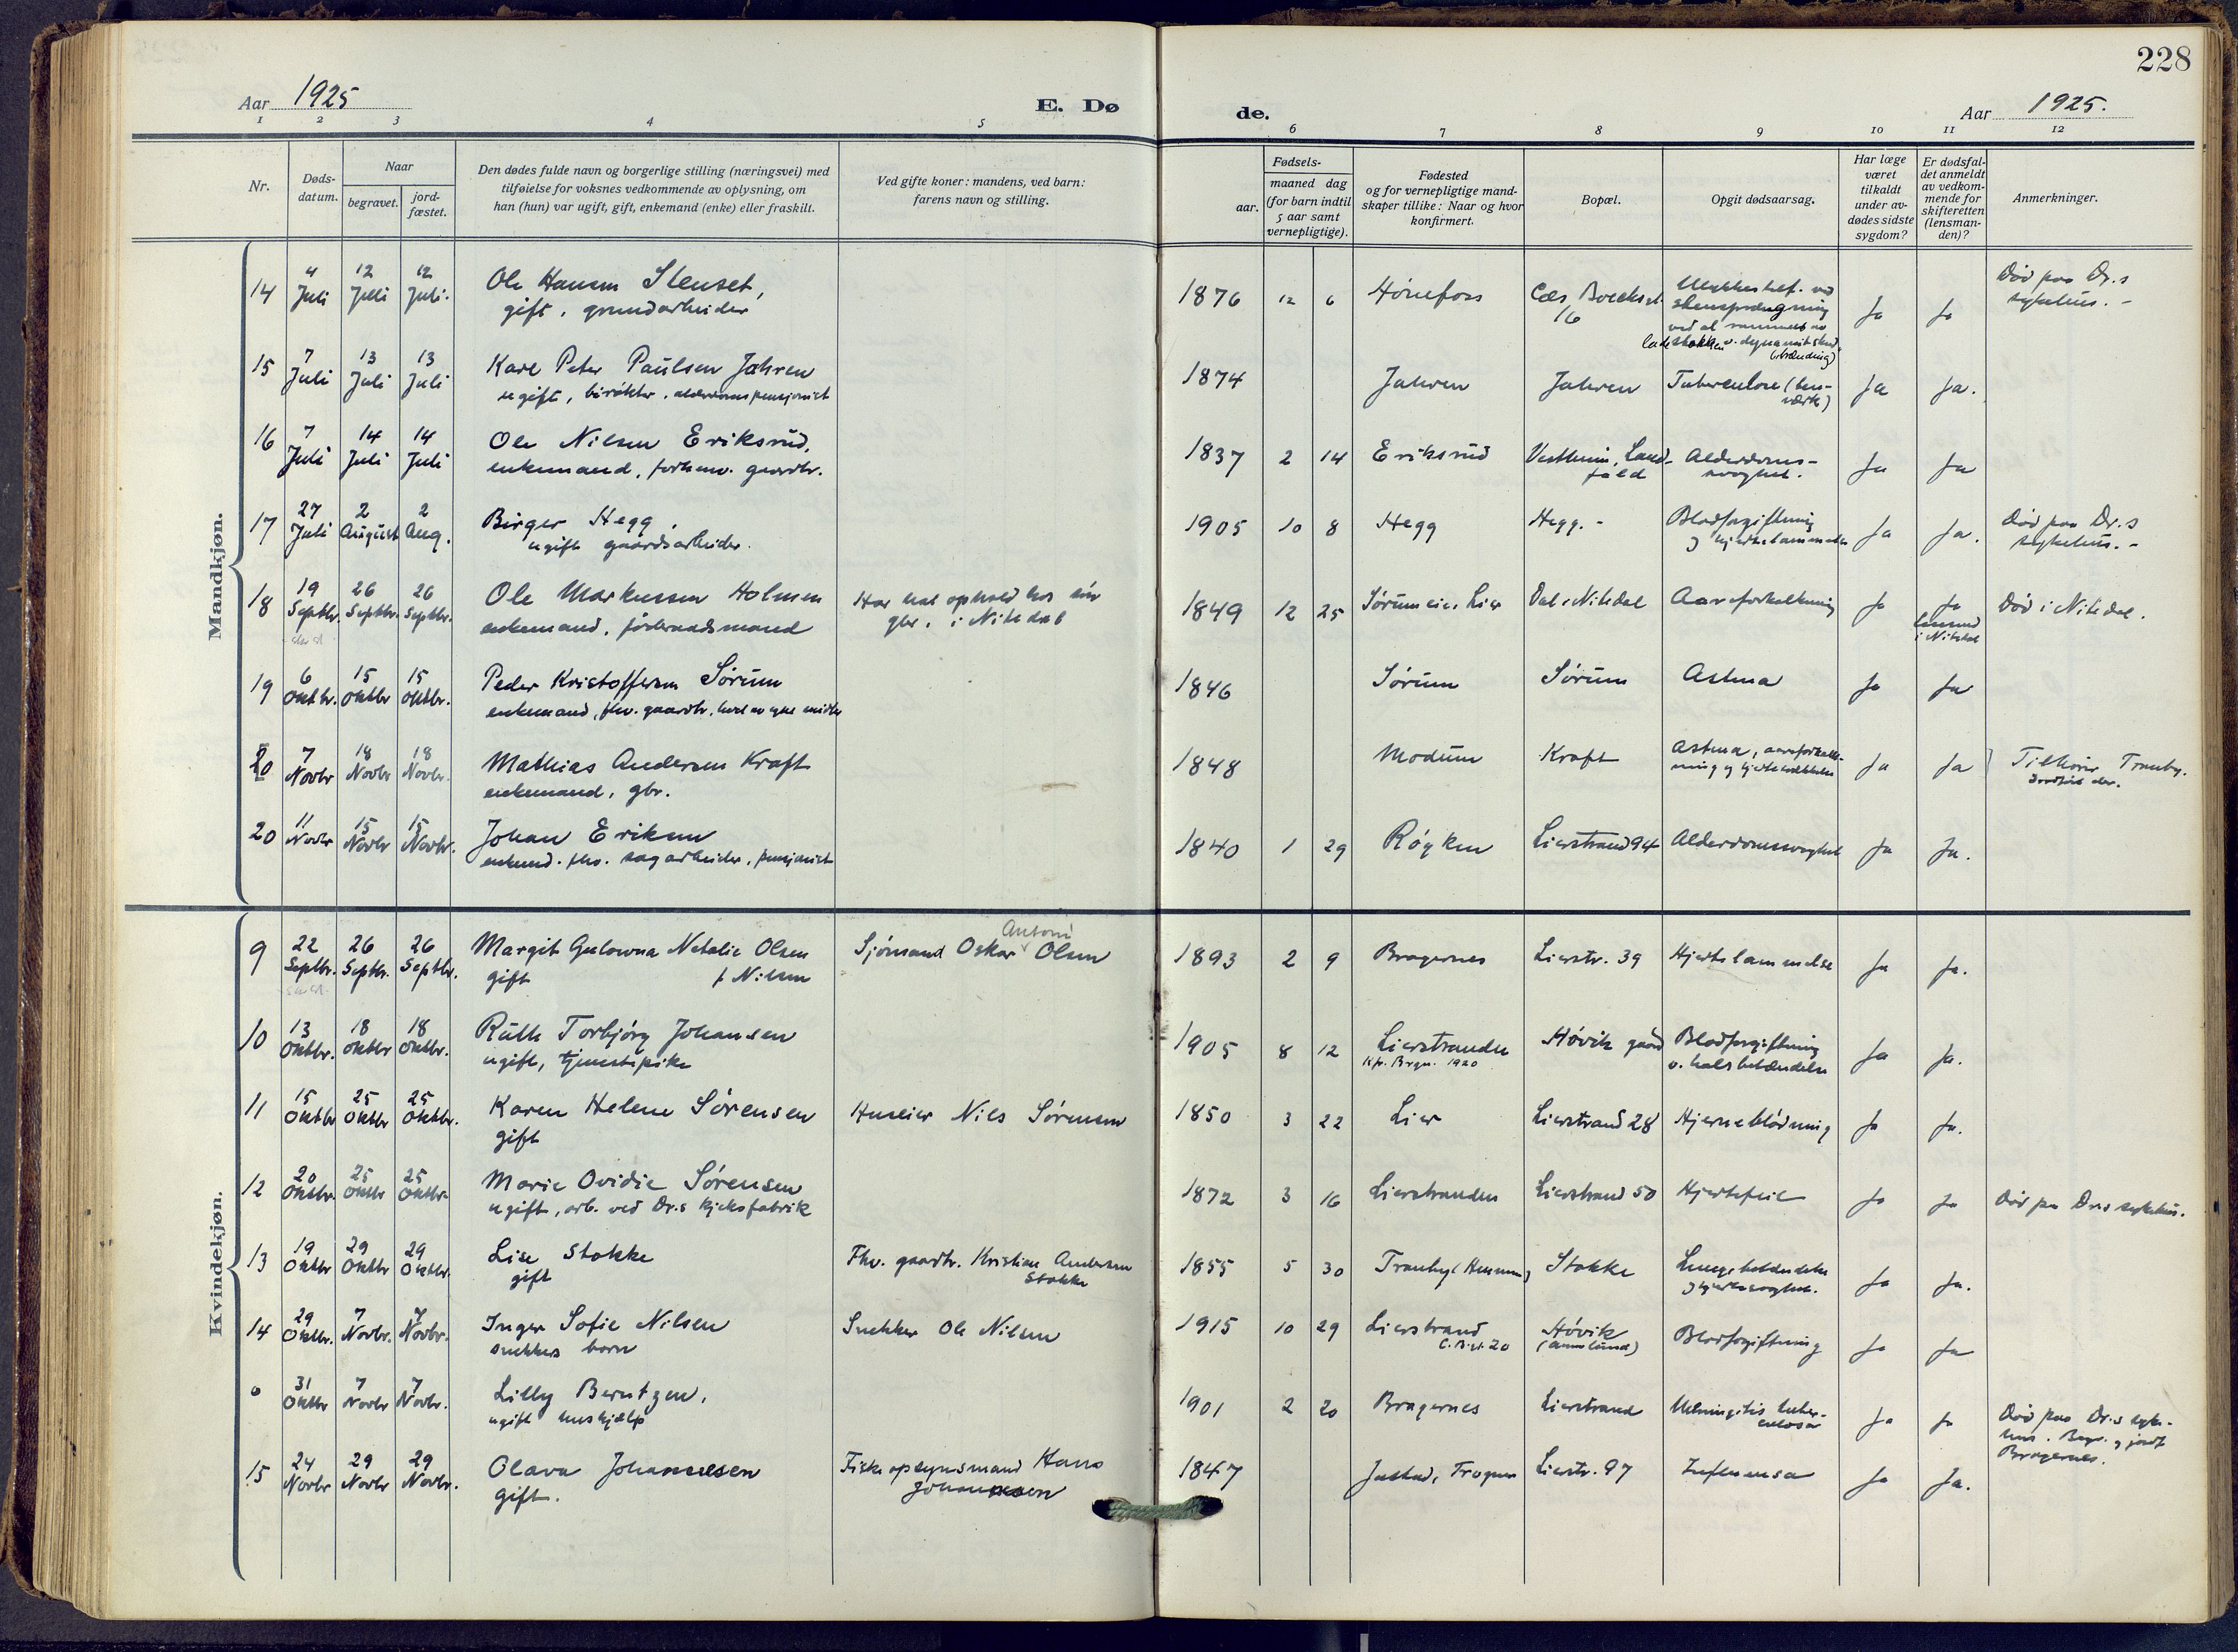 228
Aar 1925
E. Dø
de.
Aar 1925.
1 2 3 4 5 6 7 8 9 10 11 12
Nr.
Døds-
datum.
Naar
begravet.
jord-
fæstet.
Den dødes fulde navn og borgerlige stilling (næringsvei) med
tilføielse for voksnes vedkommende av oplysning, om
han (hun) var ugift, gift, enkemand (enke) eller fraskilt.
Ved gifte koner: mandens, ved barn:
farens navn og stilling.
Fødsels-
aar.
maaned dag
(for barn indtil
5 aar samt
vernepligtige).
Fødested
og for vernepligtige mand-
skaper tillike: Naar og hvor
konfirmert.
Bopæl.
Opgit dødsaarsag.
Har læge
været
tilkaldt
under av-
dødes sidste
sygdom?
Er dødsfal-
det anmeldt
av vedkom-
mende for
skifteretten
(lensman-
den)?
Anmerkninger.
Mandkjøn.
14 4 Juli 12 Juli 12 Juli. Ole Hansen Stenset,
gift, grundarbeider
1876 12 6 Hønefoss 16 Ja Ja Død paa Dr.s
sykehus. -
15 7 Juli 13 Juli 13 Juli Karl Peter Paulsen Jahren
ugift, birøkter, alderdomspensjonist
1874 Jahren Jahren Tuberculose Ja Ja.
16 7 Juli 14 Juli 14 Juli Ole Nilsen Eriksrud,
enkemand, forhenv. gaardbr.
1837 2 14 Eriksrud Vestheim, Land-
fald Alderdoms-
svaghet. Ja Ja
17 27 Juli 2 August 2 Aug. Birger Hegg,
ugift gaardsarbeider.
1905 10 8 Hegg Hegg. - Blodforgiftning
og hjertelammelse Ja Ja. Død paa Dr.s
sykehus. -
18 19 Septbr. 26 Septbr. 26 Septbr. Ole Markussen Holmen
enkemand, føderaadsmand
Har hat ophold hos sin
gbr. i Nitedal
1849 12 25 Sørumeie, Lier Dal i Nitedal Aareforkalkning Ja Ja
lensmand
i Nitedal Død i Nitedal.
19 6 Oktbr. 15 Oktbr 15 Oktbr. Peder Kristoffersen Sørum
enkemand, fhv. gaardbr. levet av egne midler
1846 Sørum Sørum Astma Ja Ja
20 7 Novbr 18 Novbr 18 Novbr. Mathias Andersen Kraft
enkemand, gbr.
1848 Modum Kraft Astma, aareforkalk-
ning og Ja Ja Tilhører Tranby.
20 11 Novbr 15 Novbr 15 Novbr. Johan Eriksen
enkemd. fhv. sagarbeider, pensjonist
1840 1 29 Røyken Lierstrand 94 Alderdomssvaghet Ja Ja.
Kvindekjøn.
9 22 Septbr. 26 Septbr. 26 Septbr. Margit Gulowna Natalie Olsen
gift f Nilsen
Sjømand Oskar Antoni Olsen
1893 2 9 Bragernes Lierstr. 39 Hjertelammelse Ja Ja.
10 13 Oktbr. 18 Oktbr 18 Oktbr. Ruth Torbjørg Johansen
ugift, tjenestepike
1905 8 12 Lierstranden
Kfr. Brgn. 1920 Høvik gaard Blodforgiftning
v. halsbetændelse Ja Ja.
11 15 Oktbr 25 Oktbr 25 Oktbr. Karen Helene Sørensen
gift
Huseier Nils Sørensen
1850 3 22 Lier Lierstrand 28 Hjerneblødning Ja Ja.
12 20 Oktbr. 25 Oktbr 25 Oktbr. Marie Ovidie Sørensen
ugift, arb. ved Dr.s Kjeksfabrik
1872 3 16 Lierstranden Lierstrand 50 Hjertefeil Ja Ja Død pa Dr.s sykehus.
13 19 Oktbr 29 Oktbr 29 Oktbr. Lise Stokke
gift
Fhv. gaardbr. Kristian Andersen
Stokke
1855 5 30 Tranby Stokke Lungebetændelse
og hjertesvaghet. Ja Ja.
14 29 Oktbr. 7 Novbr. 7 Novbr. Inger Sofie Nilsen
snekkers barn
Snekker Ole Nilsen
1915 10 29 Lierstrand Høvik Blodforgiftning Ja Ja
0 31 Oktbr 7 Novbr 7 Novbr. Lilly Berntzen,
ugift hushjælp
1901 2 20 Bragernes Lierstrand Meningitis tuber-
culosa Ja Ja Død paa Dr.s syke-
hus. Begr. og jordf
Bragernes.
15 24 Novbr 29 Novbr 29 Novbr. Olava Johannesen
gift.
Fiskeopsynsmand Hans
Johannesen
1847 Lierstr. 97 Influensa Ja Ja.